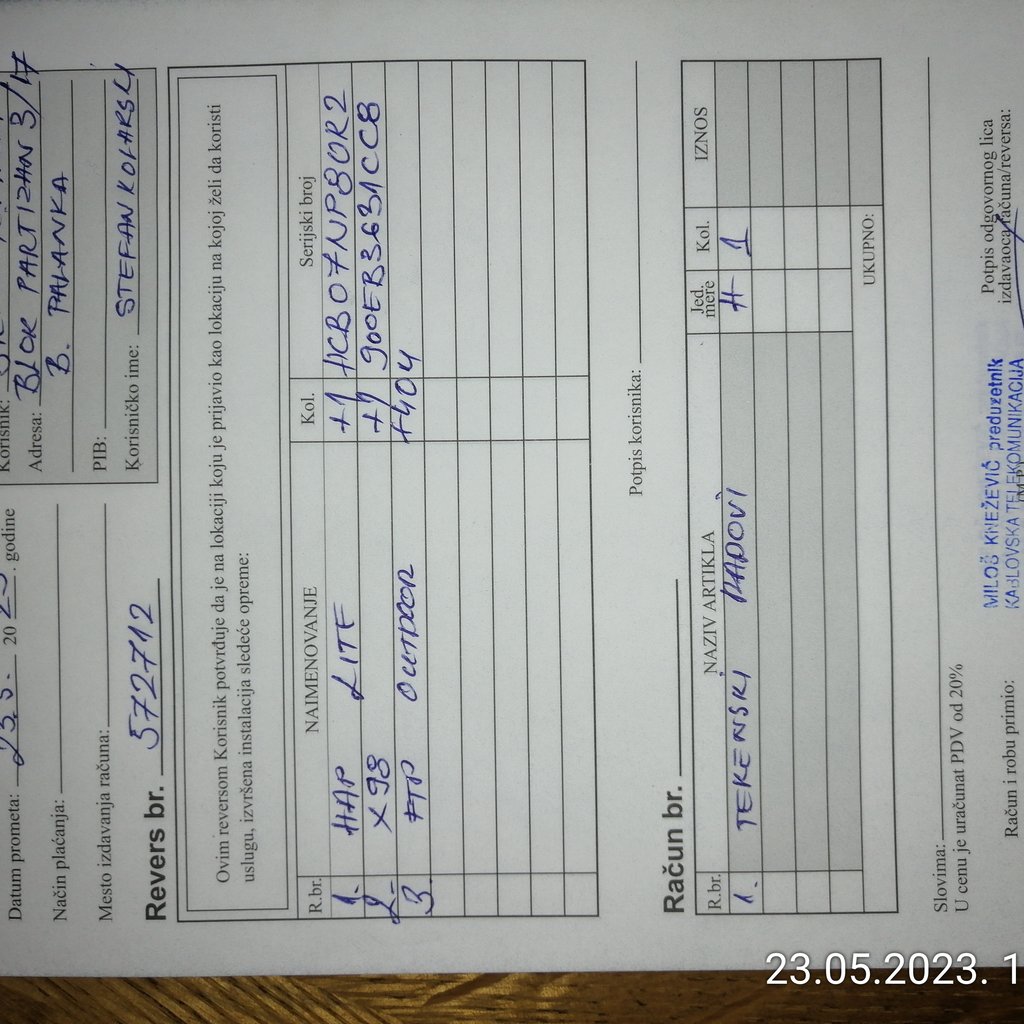 Korisnik:
Adresa: BLOK PARTIZAN 3/17
B. PALANKA
PIB:
Korisničko ime: STEFAN KOLARSKI
Datum prometa: 23.5. 2023. godine
Način plaćanja:
Mesto izdavanja računa:
Revers br. 572712
Ovim reversom Korisnik potvrđuje da je na lokaciji koju je prijavio kao lokaciju na kojoj želi da koristi
uslugu, izvršena instalacija sledeće opreme:
R.br. NAIMENOVANJE Kol. Serijski broj
1. HAP LITE +1 HCB07NP80R2
2. X98 +1 900EB3631CC8
3. FTP OUTDOOR +40M
Potpis korisnika:
Račun br.
R.br. NAZIV ARTIKLA Jed. mere Kol. IZNOS
1. TERENSKI RADOVI H 1
UKUPNO:
Slovima:
U cenu je uračunat PDV od 20%
Račun i robu primio:
MILOŠ KNEŽEVIĆ preduzetnik
KABLOVSKA TELEKOMUNIKACIJA
Potpis odgovornog lica
izdavaoca računa/reversa:
23.05.2023. 1